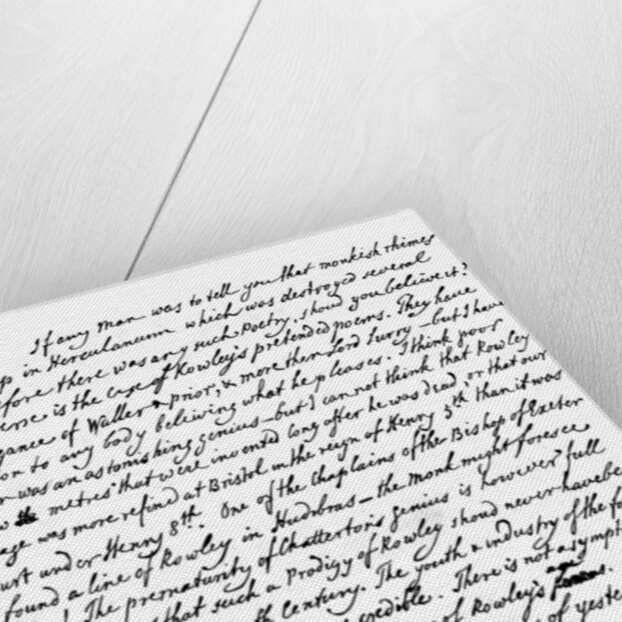 If any man was to tell you that monkish rhimes
in Herculanum which was destroyed several
before there was any such Poetry, shoud you believe it?
verse is the case of Rowley's pretended poems. They have
gance of Waller & prior, & more than Lord Surry - but I have
on to any body believing what he pleases. I think poor
was an astonishing genius - but I can not think that Rowley
metres that were invented long after he was dead, or that our
age was more refind at Bristol in the reign of Henry 5th than it was
urt under Henry 8th. One of the Chaplains of the Bishop of Exeter
found a line of Rowley in Hudibras - the Monk might foresee
! The prematurity of Chatterton's genius is however full
that such a Prodigy of Rowley shoud never have be
th Century. The youth & industry of the fo
credible. There is not a sympt
of Rowley's age
of yeste